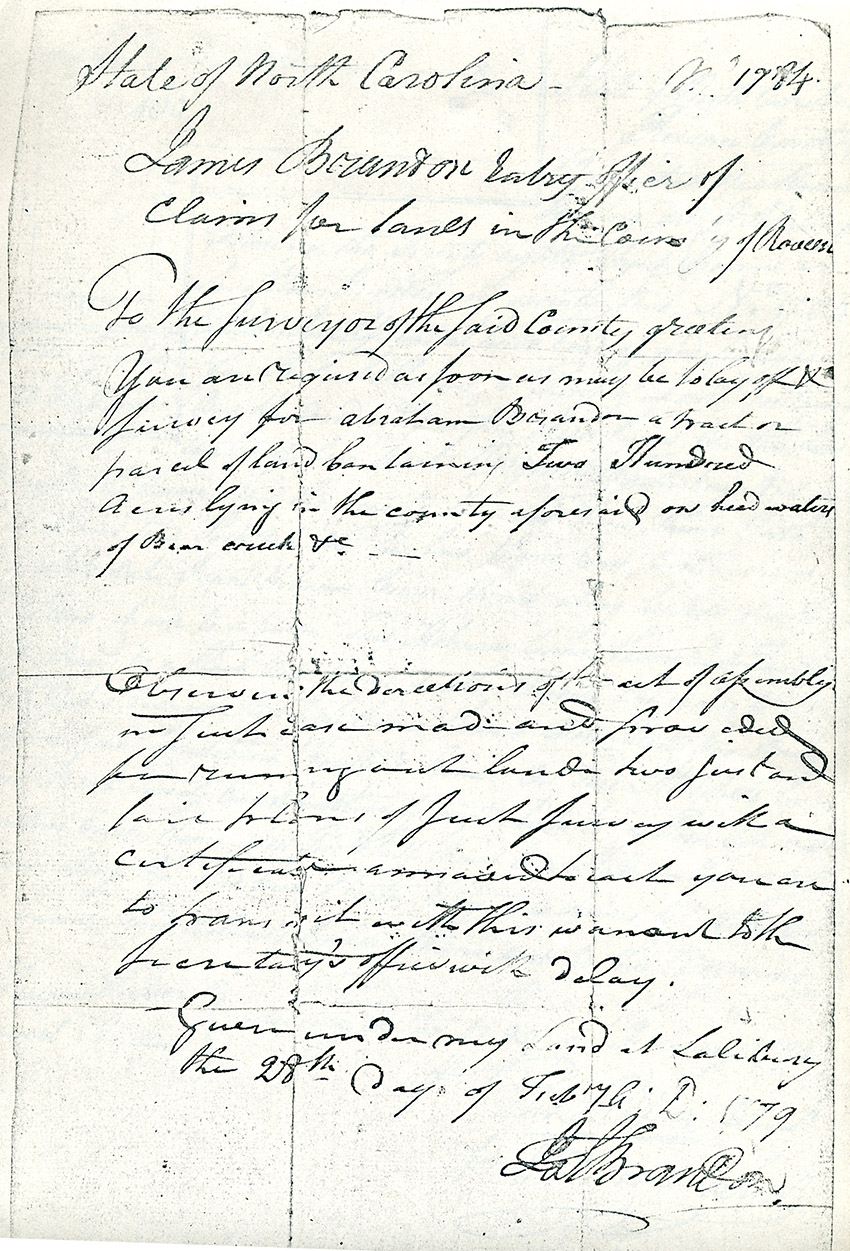 State of North Carolina - No 1784
James Brandon Entry officer of
Claims for lands in the County of Rowan
To the Surveyor of the said County greeting
You are required as soon as may be to lay off &
survey for abraham Brandon a tract or
parcel of land containing Two Hundred
Acres lying in the county aforesaid on head waters
of Bear creek &c
Observing the directions of the act of assembly
in such case made and provided
for running out lands two just and
fair plans of such survey with a
certificate annexed to each you are
to transmit with this warrant to the
secretary's office with delay.
Given under my hand at Salisbury
the 28th day of Feby A. D. 1779
Jas Brandon